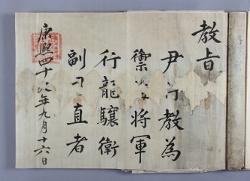 教旨
尹教為
禦侮將軍
行龍驤衛
副司直者
康熙四十年九月十六日